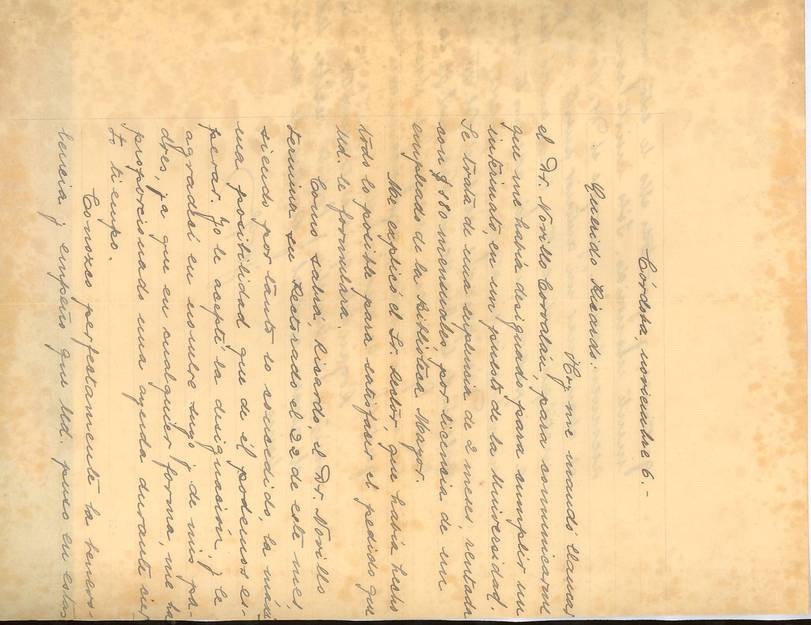 Córdoba, noviembre 6.-
Querido Ricardo:
Hoy me mandó llamar
el Dr. Novillo Corvalán, para comunicarme
que me había designado para cumplir un
interinato, en un puesto de la Universidad.
Se trata de una suplencia de 2 meses, rentada
con $ 180 mensuales, por licencia de un
empleado de la Biblioteca Mayor.
Me explicó el Sr. Rector, que había hecho
todo lo posible para satisfacer el pedido que
Ud. le formulara.
Como sabrá, Ricardo, el Dr. Novillo
termina su Rectorado el 22 de este mes,
siendo por tanto lo concedido, la máxi
ma posibilidad que de él podemos es-
perar. Yo le acepté la designación, y le
agradecí en nombre suyo y de mis pa-
dres, ya que en cualquier forma, me ha
proporcionado una ayuda durante cier
to tiempo.
Conozco perfectamente la benevo-
lencia y empeño que Ud. puso en estas